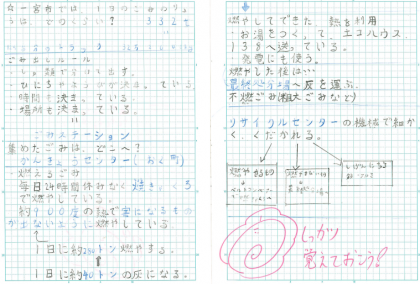 ☆一宮市では1日のごみのりょう
は、どのくらい? 332t
ごみ出しルール
・しゅ類で分けて出す。
・ひにちやようびが決まっている。
・時間も決まっている。
・場所も決まっている。
ごみステーション
集めたごみは、どこへ?
かんきょうセンター(おく町)
・燃えるごみ
毎日24時間休みなく焼きつくろ
で燃やしている。
約900度の熱で害になるもの
が出ないように燃やしている
1日に約250トン燃やする。
1日に約40トンの灰になる。
燃やしてできた、熱を利用
・お湯をつくって、エコハウス
138へ送っている。
・発電にも使う。
燃やした後は…
最終処分場へ灰を運ぶ。
不燃ごみ(粗大ごみなど)
リサイクルセンターの機械で細か
く、くだかれる。
燃やせる物
しっかり
覚えておこう!